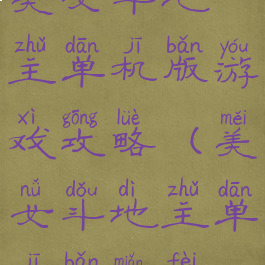 美女斗地
zhǔ dān jī bǎn yóu
主单机版游
xì gōng lüè měi
戏攻略（美
nǚ dǒu dì zhǔ dān
女斗地主单
jī bǎn miǎn fèi